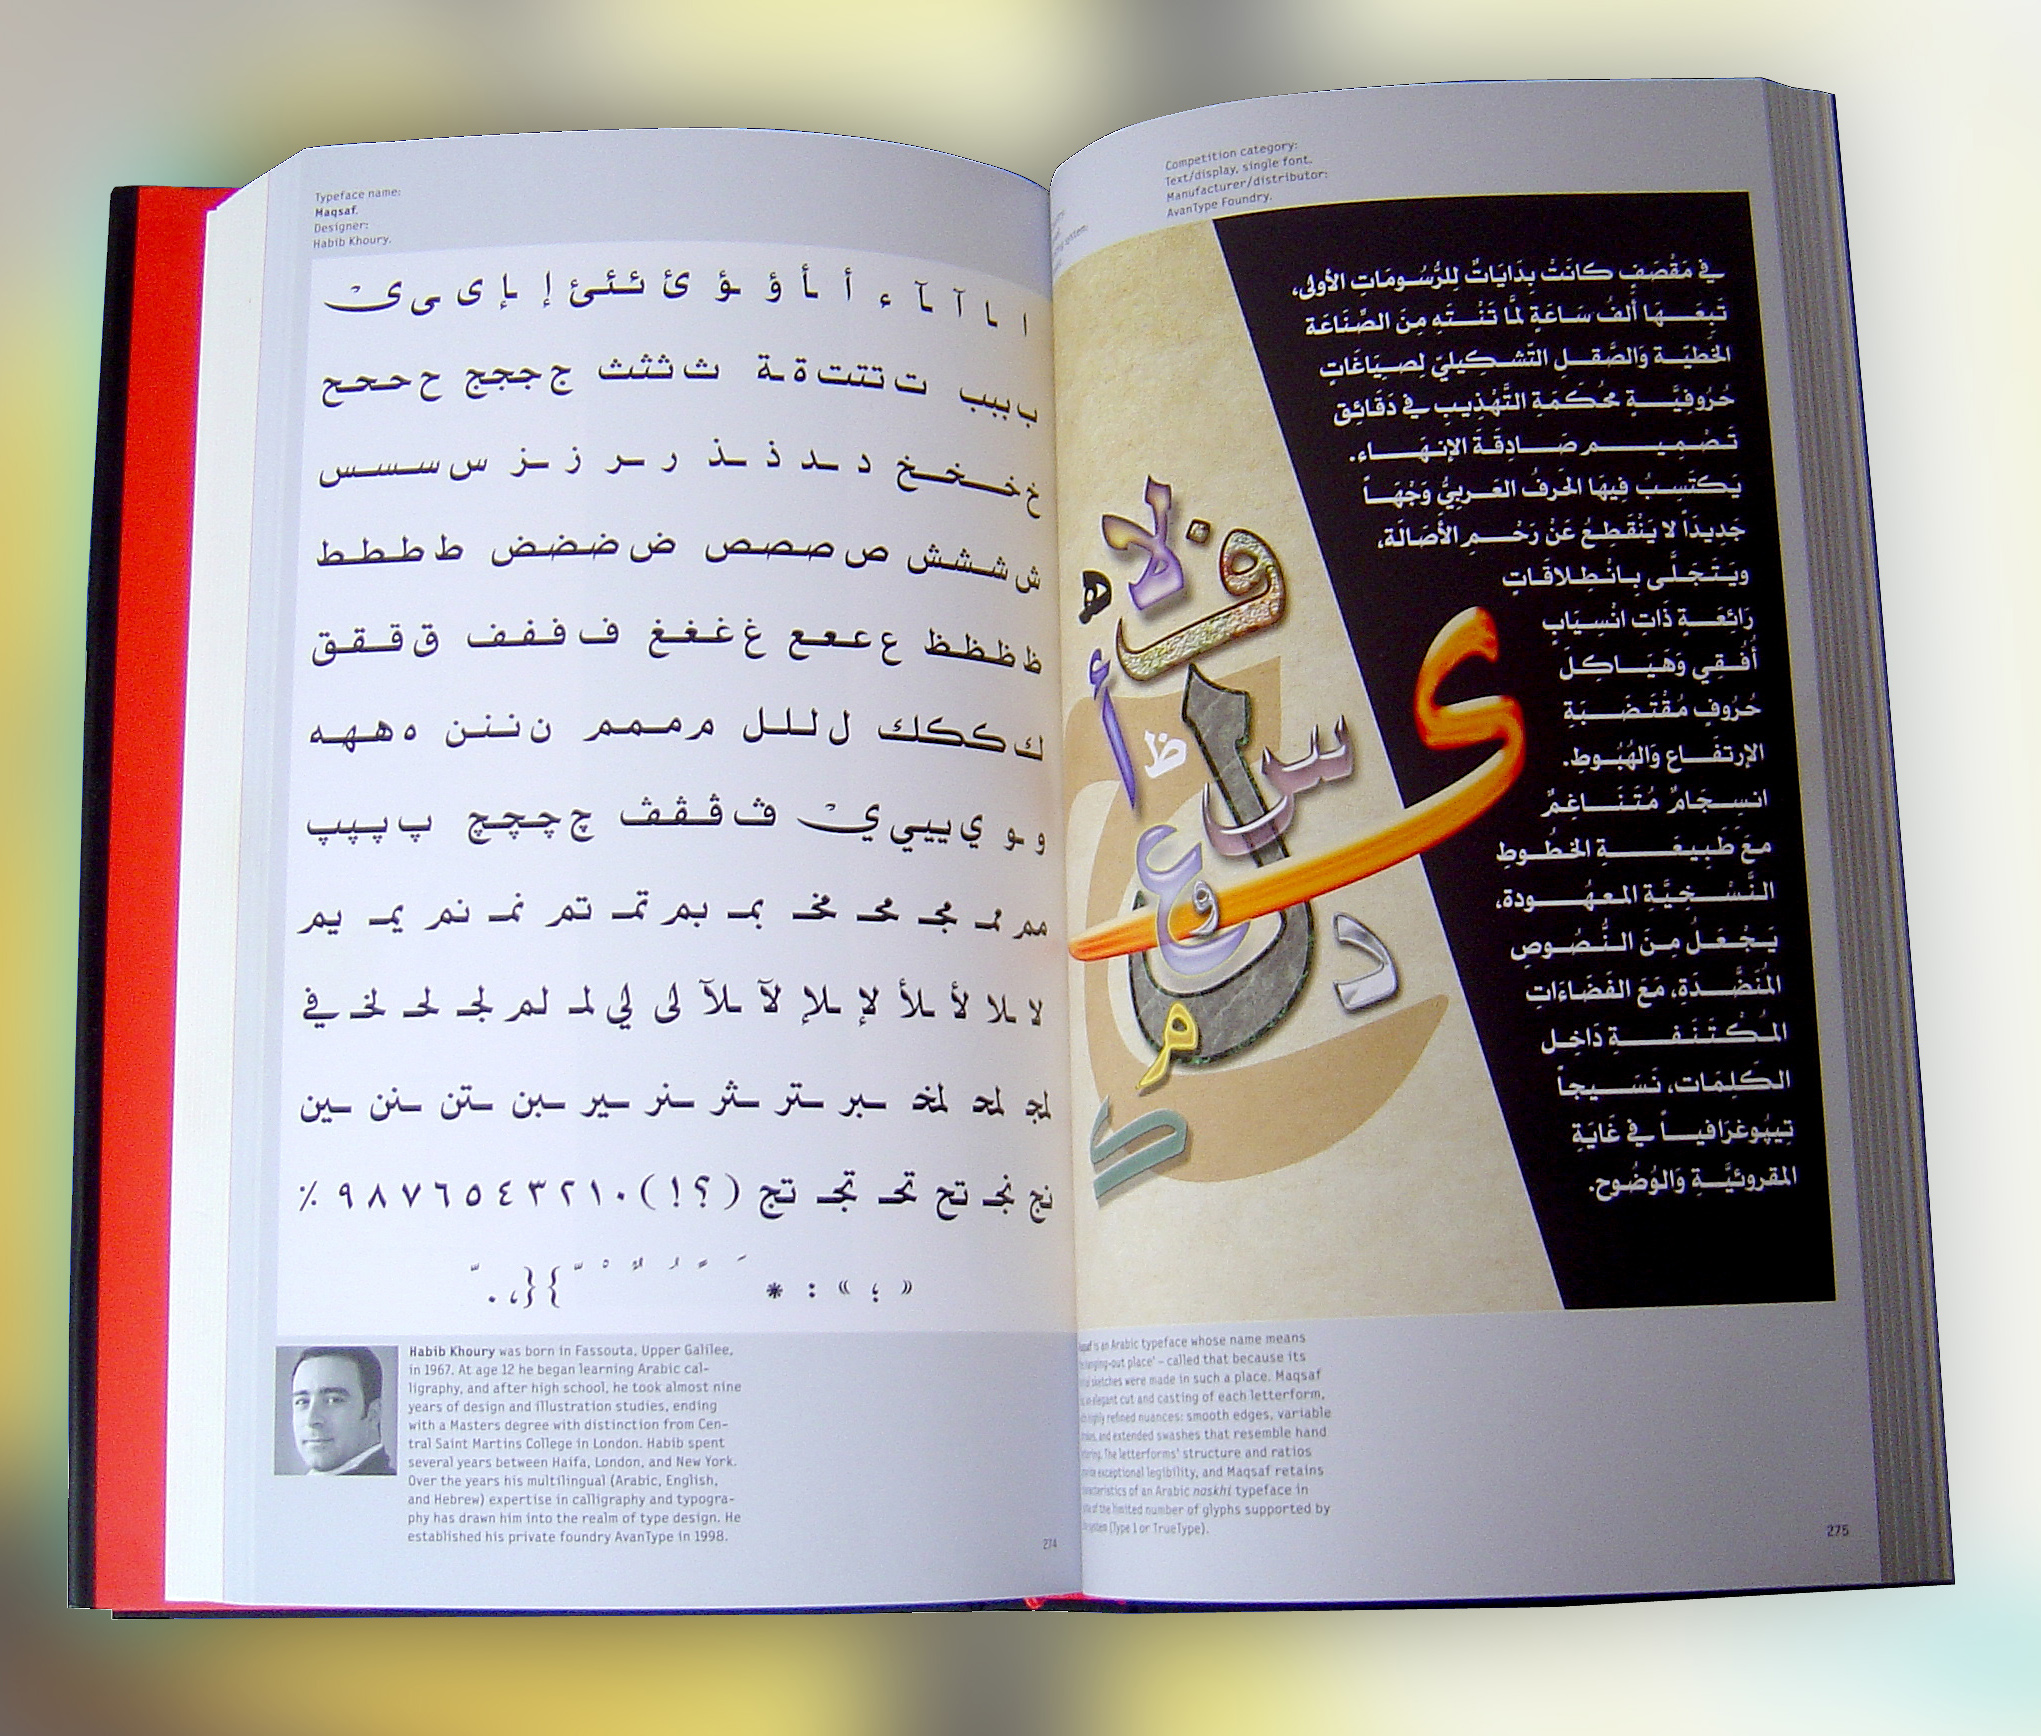 Typeface name:
Maqsaf.
Designer:
Habib Khoury.
ا ـا آ ـآ ء أ ـأ ؤ ـؤ ئ ئـئـئ إ ـإ ى ـى ىْ
ب ببب ت تتت ة ـة ث ثثث ج ججج ح ححح
خ خخخ د ـد ذ ـذ ر ـر ز ـز س سسس
ش ششش ص صصص ض ضضض ط ططط
ظ ظظظ ع ععع غ غغغ ف ففف ق ققق
ك ككك ل للل م ممم ن ننن ه ههه
و ـو ي ييي يْ ڤ ڤڤڤ چ چچچ پ پپپ
لا ـلا لأ ـلأ لإ ـلإ لآ ـلآ لى لي لمـ لم لجـ لحـ لخـ في
لمجـ لمحـ لمخـ ـسبر ـستر ـسثر ـسنر ـسير ـسبن ـستن ـسنن ـسين
نج نجـ تح تحـ تجـ تج ( ؟ ! ) ٠ ١ ٢ ٣ ٤ ٥ ٦ ٧ ٨ ٩ ٪
Habib Khoury was born in Fassouta, Upper Galilee,
in 1967. At age 12 he began learning Arabic cal-
ligraphy, and after high school, he took almost nine
years of design and illustration studies, ending
with a Masters degree with distinction from Cen-
tral Saint Martins College in London. Habib spent
several years between Haifa, London, and New York.
Over the years his multilingual (Arabic, English,
and Hebrew) expertise in calligraphy and typogra-
phy has drawn him into the realm of type design. He
established his private foundry AvanType in 1998.
274
Competition category:
Text/display, single font.
Manufacturer/distributor:
AvanType Foundry.
في مَقْصَفٍ كانَتْ بِدَايَاتٌ لِلرُّسُومَاتِ الأولى،
تَبِعَـهَا ألفُ سَاعَةٍ لمَّا تَنْـتَهِ مِنَ الصِّنَاعَة
الخطيّة وَالصَّقلِ التّشكيليّ لِصيَاغَاتٍ
حُرُوفِيَّـةٍ مُحكَمَةِ التَّهْذِيبِ في دَقَائِق
تَصْمِيـمٍ صَادِقَةَ الإنهَـاء.
يَكتَسِبُ فِيهَا الحَرفُ العَربيُّ وَجْهَـاً
جَدِيدَاً لا يَنْقَطِعُ عَنْ رَحْمِ الأَصَالَة،
ويَتَجَلَّى بِانْطِلاقَاتٍ
رَائِعَـةٍ ذَاتِ انْسِيَابٍ
أُفُقِي وَهَيَـاكِلَ
حُرُوفٍ مُقْتَضَـبَةِ
الإرتفَـاع وَالهُبُـوطِ.
انسِجَامٌ مُتَنَـاغِمٌ
مَعَ طَبِيعَـةِ الخطُـوطِ
النَّسْـخِيَّةِ المعهُـودة،
يَجْعَـلُ مِنَ النُّصُـوصِ
المُنَضَّـدَةِ، مَعَ الفَضَاءَاتِ
المُكْتَنَفـةِ دَاخِـل
الكَلِمَات، نَسَـيجاً
تِيپُوغرَافيـاً في غَايَةِ
المقروئيَّـةِ وَالوُضُوح.
ف لا ه أ ظ س ى ع و د م ك
is an Arabic typeface whose name means
place' – called that because its
sketches were made in such a place. Maqsaf
elegant cut and casting of each letterform,
refined nuances: smooth edges, variable
and extended swashes that resemble hand
The letterforms' structure and ratios
exceptional legibility, and Maqsaf retains
of an Arabic naskhi typeface in
of the limited number of glyphs supported by
(Type 1 or TrueType).
275